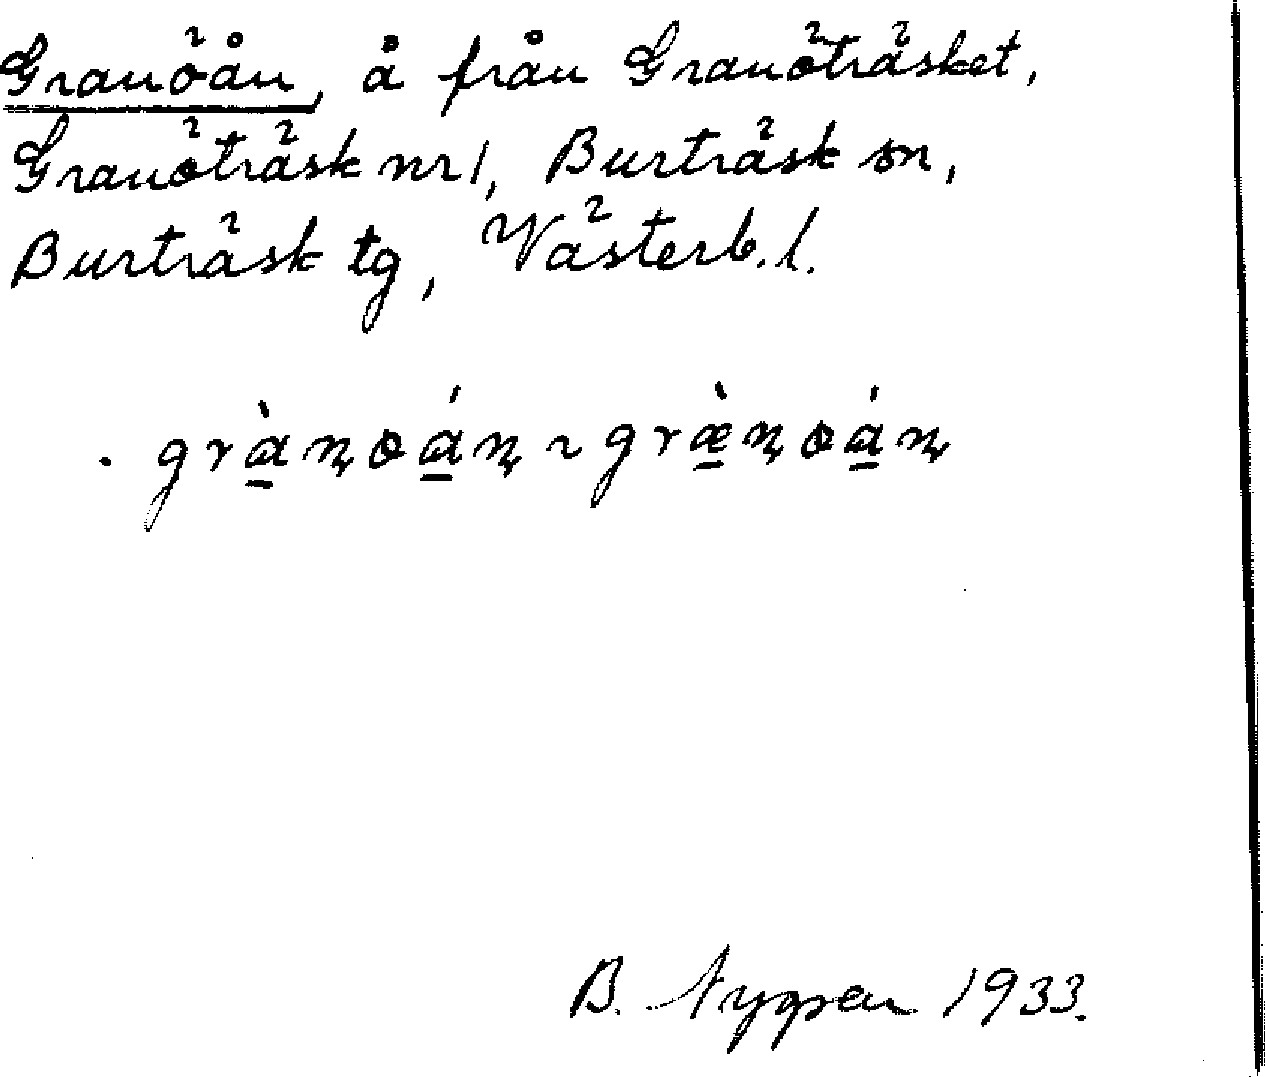 Granöån, å från Granöträsket,
Granöträsk nr 1, Burträsk sn,
Burträsk tg, Västerb. l.
B. Nygren 1933.